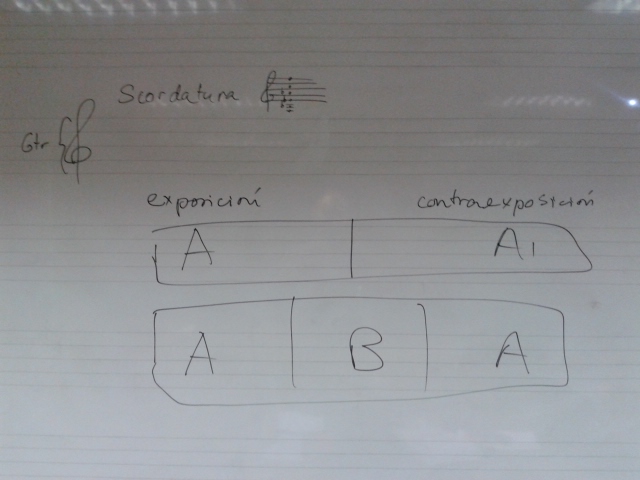 Scordatura
Gtr
exposición contraexposición
A A1
A B A